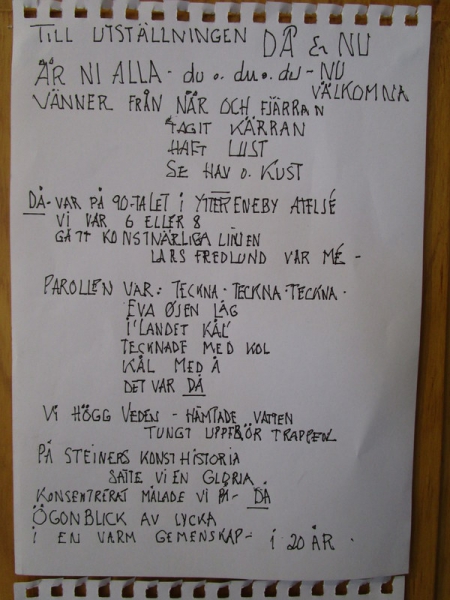 TILL UTSTÄLLNINGEN DÅ & NU
ÄR NI ALLA - du o. du o. du - NU
VÄLKOMNA
VÄNNER FRÅN NÄR OCH FJÄRRAN
TAGIT KÄRRAN
HAFT LUST
SE HAV O. KUST
DÅ - VAR PÅ 90-TALET I YTTERENEBY ATELJÉ
VI VAR 6 ELLER 8
GÅTT KONSTNÄRLIGA LINJEN
LARS FREDLUND VAR MÉ -
PAROLLEN VAR: TECKNA - TECKNA - TECKNA -
EVA ÖJEN LÅG
I LANDET KÅL
TECKNADE MED KOL
KÅL MED Å
DET VAR DÅ
VI HÖGG VEDEN - HÄMTADE VATTEN
TUNGT UPPFÖR TRAPPEN
PÅ STEINERS KONSTHISTORIA
SATTE VI EN GLORIA
KONSENTRERAT MÅLADE VI PÅ - DÅ
ÖGONBLICK AV LYCKA
I EN VARM GEMENSKAP - I 20 ÅR .